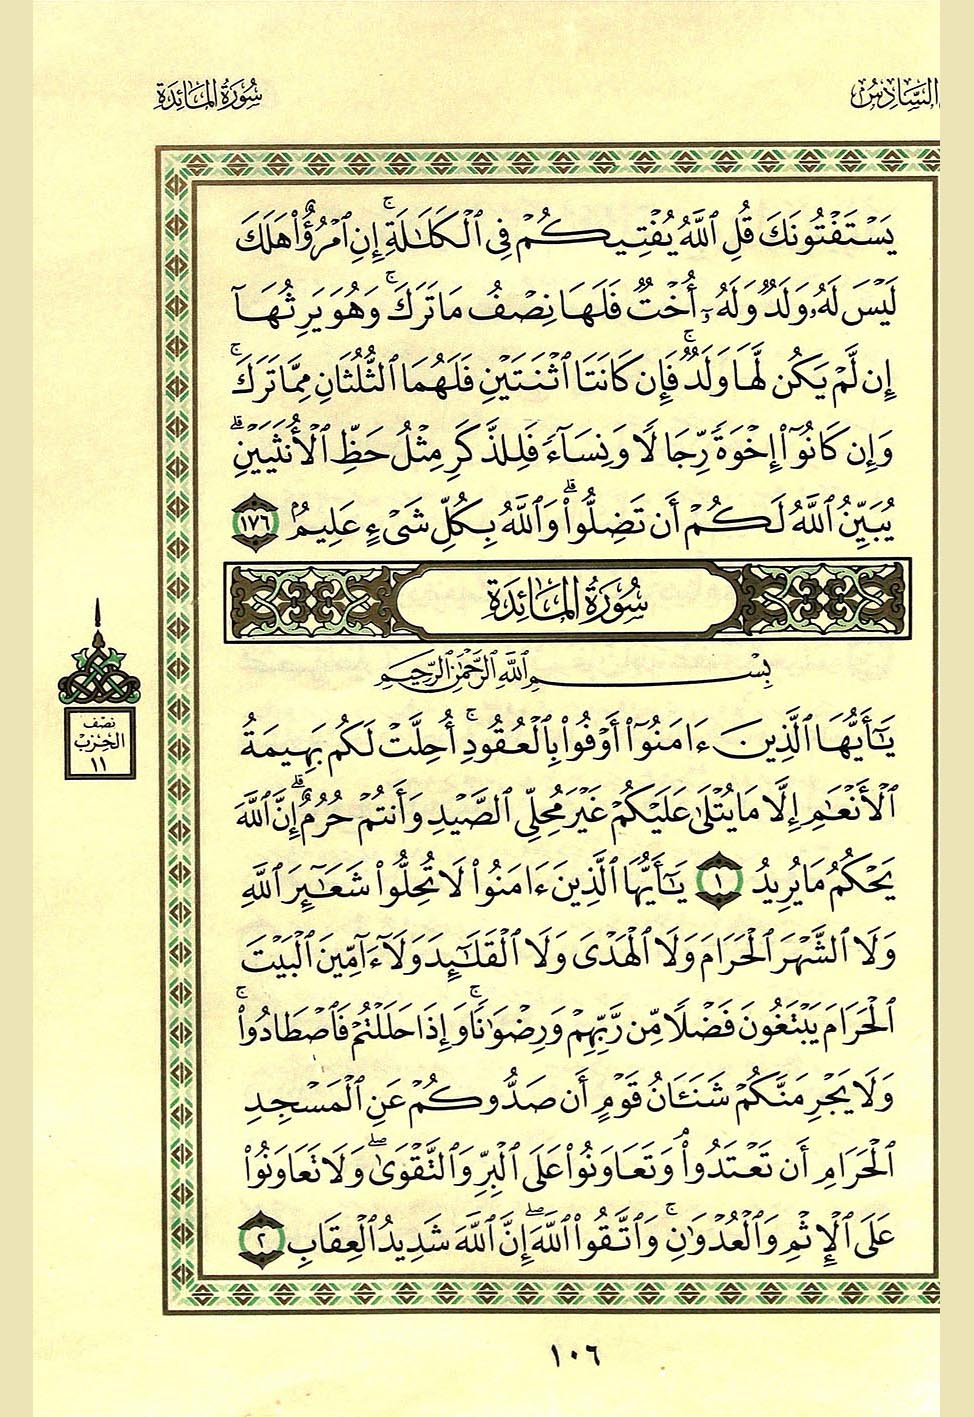 السَّادِسُ
سُورَةُ المَائِدَةِ
يَسْتَفْتُونَكَ قُلِ ٱللَّهُ يُفْتِيكُمْ فِى ٱلْكَلَـٰلَةِ ۚ إِنِ ٱمْرُؤٌا۟ هَلَكَ
لَيْسَ لَهُۥ وَلَدٌ وَلَهُۥٓ أُخْتٌ فَلَهَا نِصْفُ مَا تَرَكَ ۚ وَهُوَ يَرِثُهَآ
إِن لَّمْ يَكُن لَّهَا وَلَدٌ ۚ فَإِن كَانَتَا ٱثْنَتَيْنِ فَلَهُمَا ٱلثُّلُثَانِ مِمَّا تَرَكَ ۚ
وَإِن كَانُوٓا۟ إِخْوَةً رِّجَالًا وَنِسَآءً فَلِلذَّكَرِ مِثْلُ حَظِّ ٱلْأُنثَيَيْنِ ۗ
يُبَيِّنُ ٱللَّهُ لَكُمْ أَن تَضِلُّوا۟ ۗ وَٱللَّهُ بِكُلِّ شَىْءٍ عَلِيمٌۢ ١٧٦
سُورَةُ المَائِدَةِ
بِسْمِ ٱللَّهِ ٱلرَّحْمَـٰنِ ٱلرَّحِيمِ
يَـٰٓأَيُّهَا ٱلَّذِينَ ءَامَنُوٓا۟ أَوْفُوا۟ بِٱلْعُقُودِ ۚ أُحِلَّتْ لَكُم بَهِيمَةُ
ٱلْأَنْعَـٰمِ إِلَّا مَا يُتْلَىٰ عَلَيْكُمْ غَيْرَ مُحِلِّى ٱلصَّيْدِ وَأَنتُمْ حُرُمٌ ۗ إِنَّ ٱللَّهَ
يَحْكُمُ مَا يُرِيدُ ١ يَـٰٓأَيُّهَا ٱلَّذِينَ ءَامَنُوا۟ لَا تُحِلُّوا۟ شَعَـٰٓئِرَ ٱللَّهِ
وَلَا ٱلشَّهْرَ ٱلْحَرَامَ وَلَا ٱلْهَدْىَ وَلَا ٱلْقَلَـٰٓئِدَ وَلَآ ءَآمِّينَ ٱلْبَيْتَ
ٱلْحَرَامَ يَبْتَغُونَ فَضْلًا مِّن رَّبِّهِمْ وَرِضْوَٰنًا ۚ وَإِذَا حَلَلْتُمْ فَٱصْطَادُوا۟ ۚ
وَلَا يَجْرِمَنَّكُمْ شَنَـَٔانُ قَوْمٍ أَن صَدُّوكُمْ عَنِ ٱلْمَسْجِدِ
ٱلْحَرَامِ أَن تَعْتَدُوا۟ ۘ وَتَعَاوَنُوا۟ عَلَى ٱلْبِرِّ وَٱلتَّقْوَىٰ ۖ وَلَا تَعَاوَنُوا۟
عَلَى ٱلْإِثْمِ وَٱلْعُدْوَٰنِ ۚ وَٱتَّقُوا۟ ٱللَّهَ ۖ إِنَّ ٱللَّهَ شَدِيدُ ٱلْعِقَابِ ٢
نصف
الحزب
١١
١٠٦